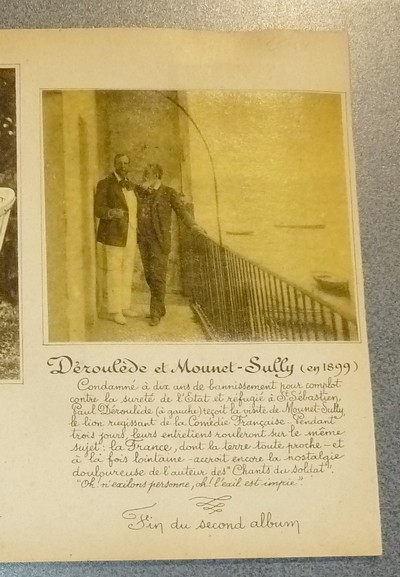 Déroulède et Mounet-Sully (en 1899)
Condamné à dix ans de bannissement pour complot
contre la sureté de l'État et réfugié à St Sébastien,
Paul Déroulède (à gauche) reçoit la visite de Mounet-Sully,
le lion rugissant de la Comédie Française. Pendant
trois jours, leurs entretiens rouleront sur le même
sujet : la France, dont la terre toute proche - et
à la fois lointaine - accroit encore la nostalgie
douloureuse de l'auteur des "Chants du soldat".
"Oh ! n'exilons personne, oh ! l'exil est impie".
Fin du second album